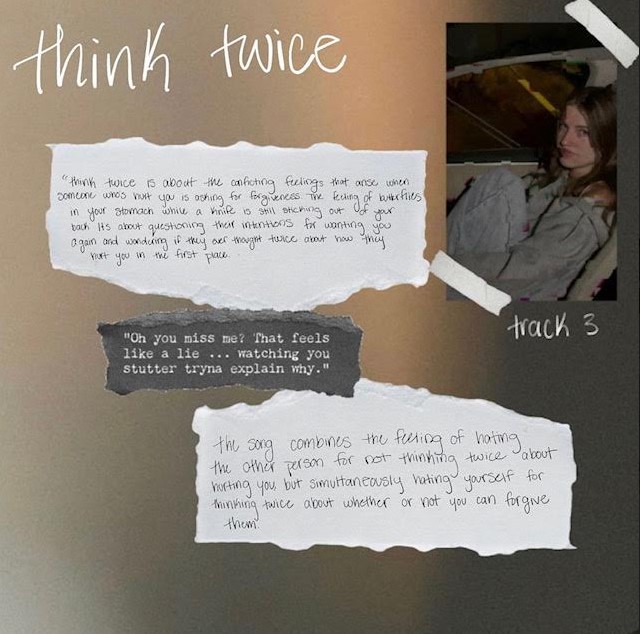 think twice
"think twice is about the conflicting feelings that arise when
someone who's hurt you is asking for forgiveness. The feeling of butterflies
in your stomach while a knife is still sticking out of your
back. Its about questioning their intentions for wanting you
again and wondering if they ever thought twice about how they
hurt you in the first place.
track 3
"Oh you miss me? That feels
like a lie ... watching you
stutter tryna explain why."
the song combines the feeling of hating
the other person for not thinking twice about
hurting you, but simultaneously hating yourself for
thinking twice about whether or not you can forgive
them.